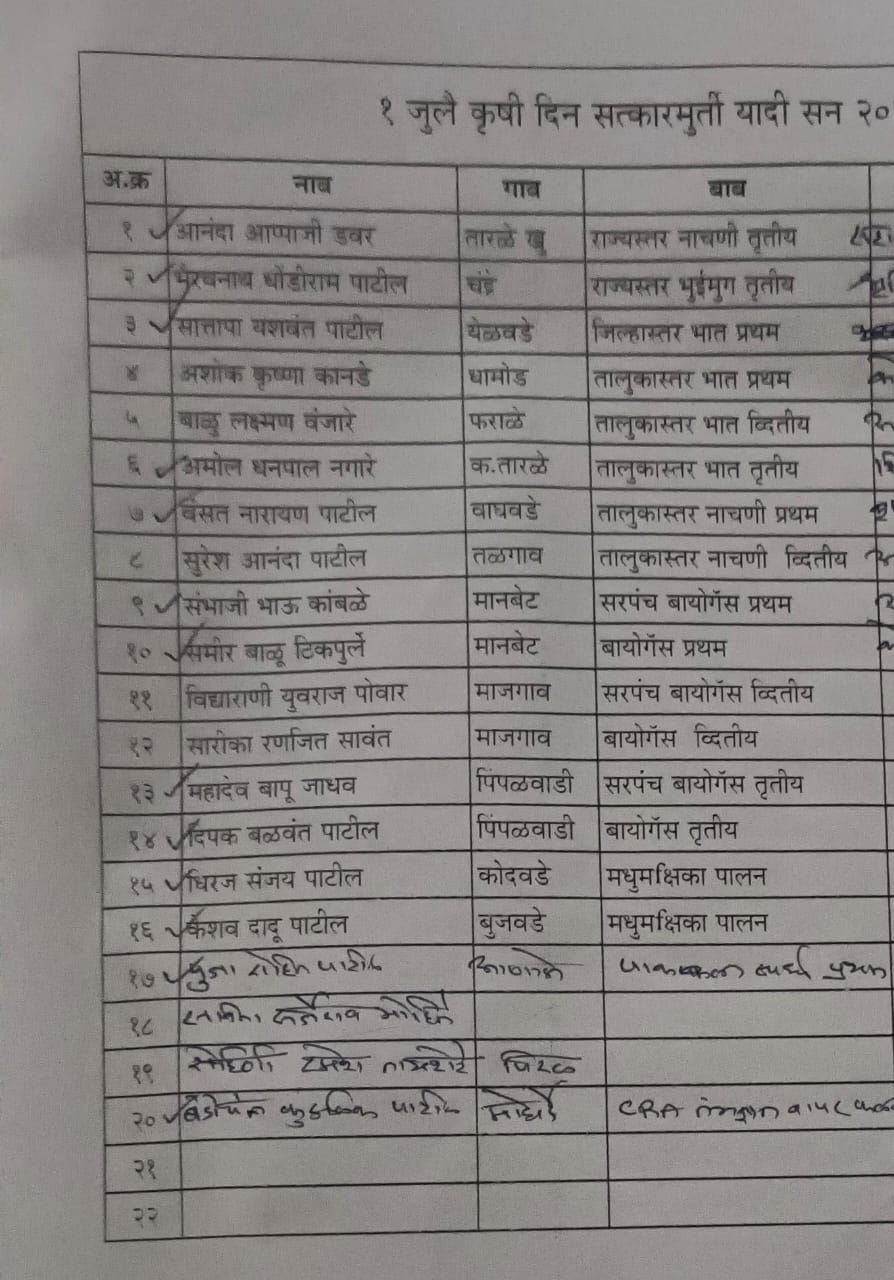 १ जुलै कृषी दिन सत्कारमुर्ती यादी सन २०
अ.क्र नाव गाव बाब
१ आनंदा आप्पाजी डवर तारळे खु राज्यस्तर नाचणी तृतीय
२ भैरवनाथ धोंडीराम पाटील चंद्रे राज्यस्तर भुईमुग तृतीय
३ सात्तापा यशवंत पाटील येळवडे जिल्हास्तर भात प्रथम
४ अशोक कृष्णा कानडे धामोड तालुकास्तर भात प्रथम
५ बाळु लक्ष्मण वंजारे फराळे तालुकास्तर भात व्दितीय
६ अमोल धनपाल नगारे क.तारळे तालुकास्तर भात तृतीय
७ वसंत नारायण पाटील वाघवडे तालुकास्तर नाचणी प्रथम
८ सुरेश आनंदा पाटील तळगाव तालुकास्तर नाचणी व्दितीय
९ संभाजी भाऊ कांबळे मानबेट सरपंच बायोगॅस प्रथम
१० समीर बाळू टिकपुर्ले मानबेट बायोगॅस प्रथम
११ विद्याराणी युवराज पोवार माजगाव सरपंच बायोगॅस व्दितीय
१२ सारीका रणजित सावंत माजगाव बायोगॅस व्दितीय
१३ महादेव बापू जाधव पिंपळवाडी सरपंच बायोगॅस तृतीय
१४ दिपक बळवंत पाटील पिंपळवाडी बायोगॅस तृतीय
१५ धिरज संजय पाटील कोदवडे मधुमक्षिका पालन
१६ केशव दादू पाटील बुजवडे मधुमक्षिका पालन
१७ पाटील स्पर्धा प्रथम
१८
१९
२० पाटील CRA वापर
२१
२२